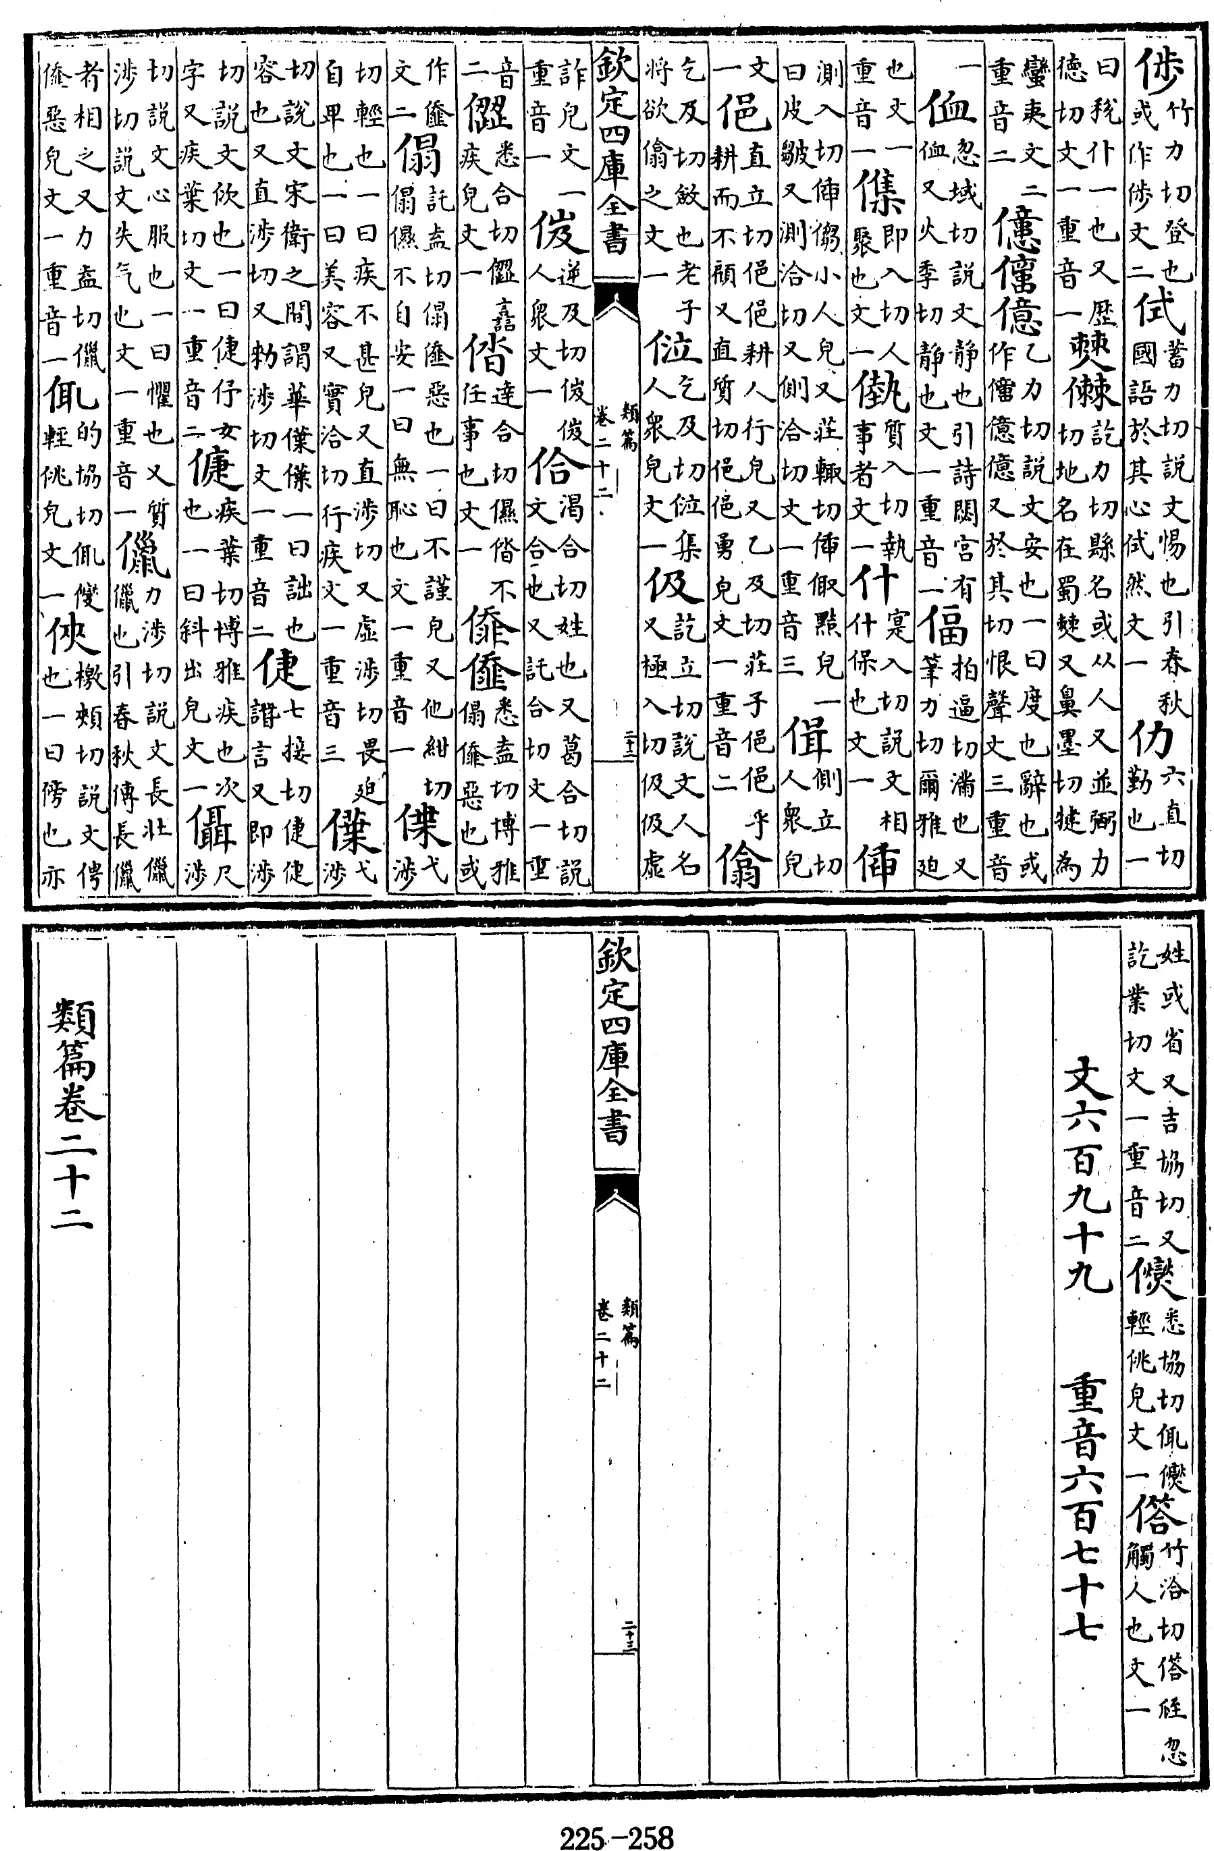 竹力切登也
或作 文二
侙
蓄力切説文惕也引春秋
國語於其心侙然文一
仂
六直切
勤也一
曰 仆一也又歷
德切文一重音一
僰
訖力切縣名或从人又並弼力
切地名在蜀僰又鼻墨切犍為
蠻夷文二
重音二
億
乙力切説文安也一曰度也辭也或
作 億 又於其切恨聲文三重音
一
侐
忽域切説文静也引詩閟宫有
侐又火季切静也文一重音一
偪
拍逼切滿也又
筆力切爾雅迫
也文一
重音一
即入切人
聚也文一
質入切執
事者文一
什
寔入切説文相
什保也文一
偛
測入切偛 小人皃又莊輒切偛 黠皃一
曰皮皺又測洽切又側洽切文一重音三
偮
側立切
人衆皃
文
一
俋
直立切俋俋耕人行皃又乙及切莊子俋俋乎
耕而不顧又直質切俋俋勇皃文一重音二
乞及切斂也老子
將欲 之文一
乞及切 集
人衆皃文一
伋
訖立切説文人名
又極入切伋伋虚
欽定四庫全書
類篇
卷二十二
詐皃文一
重音一
逆及切
人衆文一
佮
渴合切姓也又葛合切説
文合也又託合切文一重
音
二
悉合切 譶
疾皃文一
偺
達合切儑偺不
任事也文一
悉盍切博雅
傝 惡也或
作
文二
傝
託盍切傝 惡也一曰不謹皃又他紺切
傝儑不自安一曰無恥也文一重音一
偞
弋
涉
切輕也一曰疾不甚皃又直涉切又虚涉切畏迫
自卑也一曰美容又實洽切行疾文一重音三
僷
弋
涉
切説文宋衛之間謂華僷僷一曰詘也
容也又直涉切又勑涉切文一重音二
倢
七接切倢倢
譖言又即涉
切説文佽也一曰倢伃女
字又疾葉切文一重音二
疾葉切博雅疾也次
也一曰斜出皃文一
儑
尺
涉
切説文心服也一曰懼也又質
涉切説文失气也文一重音一
儠
力涉切説文長壯儠
儠也引春秋傳長儠
者相之又力盍切儠
 惡皃文一重音一
的協切
輕佻皃文一
俠
檄頰切説文俜
也一曰傍也亦
姓或省又吉協切又
訖業切文一重音二
悉協切
輕佻皃文一
竹洽切 忽
觸人也文一
文六百九十九　重音六百七十七
欽定四庫全書
類篇
卷二十二
二十三
類篇卷二十二
225-258